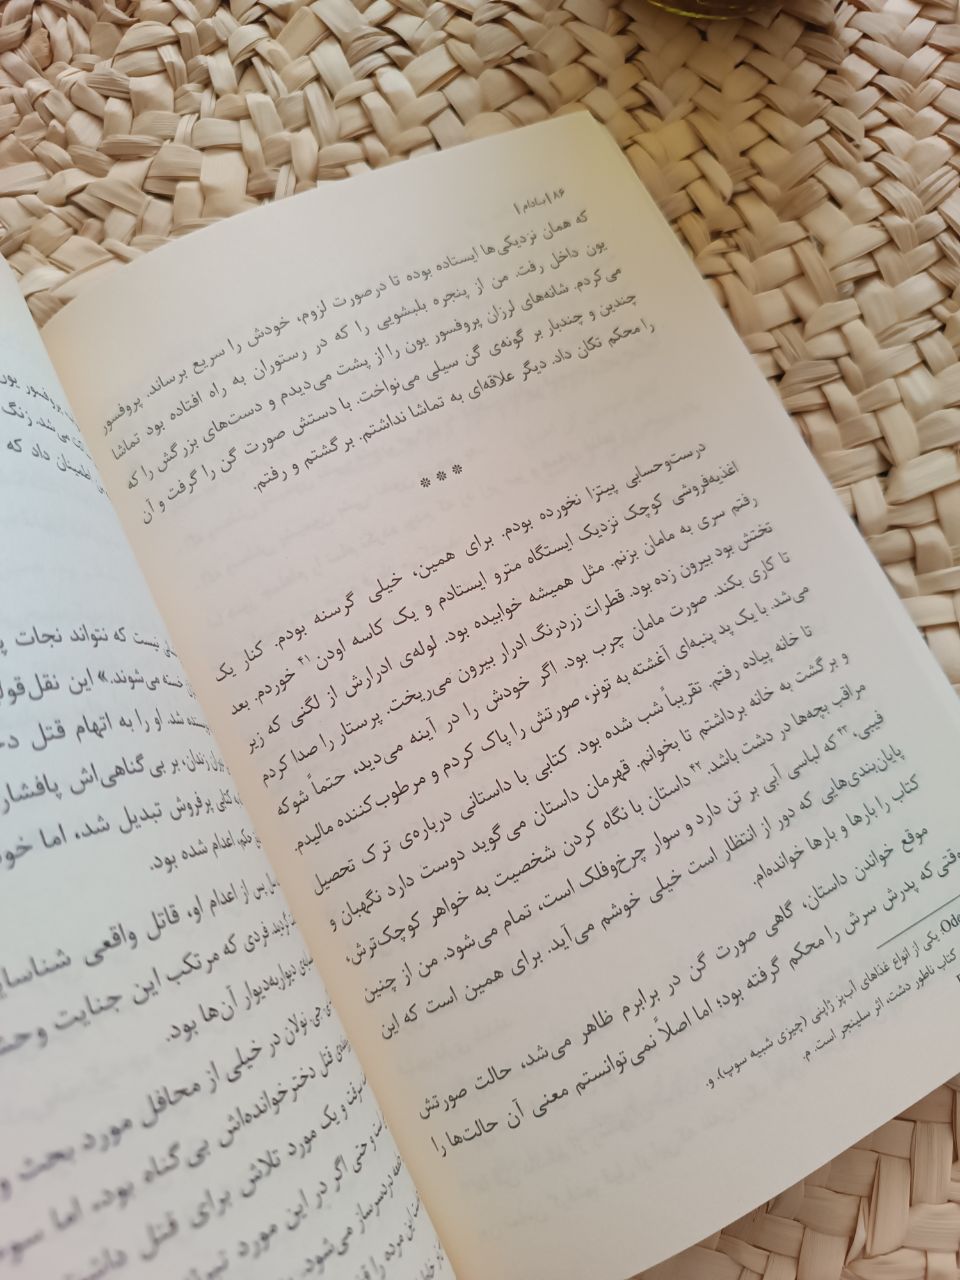 ۸۶ | بادام |
که همان نزدیکی‌ها ایستاده بوده تا درصورت لزوم، خودش را سریع برساند. پروفسور
یون داخل رفت. من از پنجره بلبشویی را که در رستوران به راه افتاده بود تماشا
می‌کردم. شانه‌های لرزان پروفسور یون را از پشت می‌دیدم و دست‌های بزرگش را که
چندین و چندبار بر گونه‌ی گن سیلی می‌نواخت. با دستش صورت گن را گرفت و آن
را محکم تکان داد. دیگر علاقه‌ای به تماشا نداشتم. برگشتم و رفتم.
***
درست‌وحسابی پیتزا نخورده بودم. برای همین، خیلی گرسنه بودم. کنار یک
اغذیه‌فروشی کوچک نزدیک ایستگاه مترو ایستادم و یک کاسه اودن۴۱ خوردم. بعد
رفتم سری به مامان بزنم. مثل همیشه خوابیده بود. لوله‌ی ادرارش از لگنی که زیر
تختش بود بیرون زده بود. قطرات زردرنگ ادرار بیرون می‌ریخت. پرستار را صدا کردم
تا کاری بکند. صورت مامان چرب بود. اگر خودش را در آینه می‌دید، حتماً شوکه
می‌شد. با یک پد پنبه‌ای آغشته به تونر، صورتش را پاک کردم و مرطوب‌کننده مالیدم.
تا خانه پیاده رفتم. تقریباً شب شده بود. کتابی با داستانی درباره‌ی ترک تحصیل
و برگشت به خانه برداشتم تا بخوانم. قهرمان داستان می‌گوید دوست دارد نگهبان و
مراقب بچه‌ها در دشت باشد.۴۲ داستان با نگاه کردن شخصیت به خواهر کوچک‌ترش،
فیبی،۴۳ که لباسی آبی بر تن دارد و سوار چرخ‌وفلک است، تمام می‌شود. من از چنین
پایان‌بندی‌هایی که دور از انتظار است خیلی خوشم می‌آید. برای همین است که این
کتاب را بارها و بارها خوانده‌ام.
موقع خواندن داستان، گاهی صورت گن در برابرم ظاهر می‌شد، حالت صورتش
وقتی که پدرش سرش را محکم گرفته بود؛ اما اصلاً نمی‌توانستم معنی آن حالت‌ها را
یکی از انواع غذاهای آب‌پز ژاپنی (چیزی شبیه سوپ). و.
کتاب ناطور دشت، اثر سلینجر است. م.
پروفسور یون
می‌شد. زنگ
اطمینان داد که
نیست که نتواند نجات
خسته می‌شوند.» این نقل‌قول
شد. او را به اتهام قتل
زندان، بر بی‌گناهی‌اش پافشار
کتابی پرفروش تبدیل شد، اما
اعدام شده بود.
پس از اعدام او، قاتل واقعی
فردی که مرتکب این جنایت
دیواربه‌دیوار آن‌ها بود.
نولان در خیلی از محافل مورد بحث و
قتل دخترخوانده‌اش بی‌گناه بود، اما
و یک مورد تلاش برای قتل
و حتی اگر در این مورد
دردسرساز می‌شود.
این مرده را